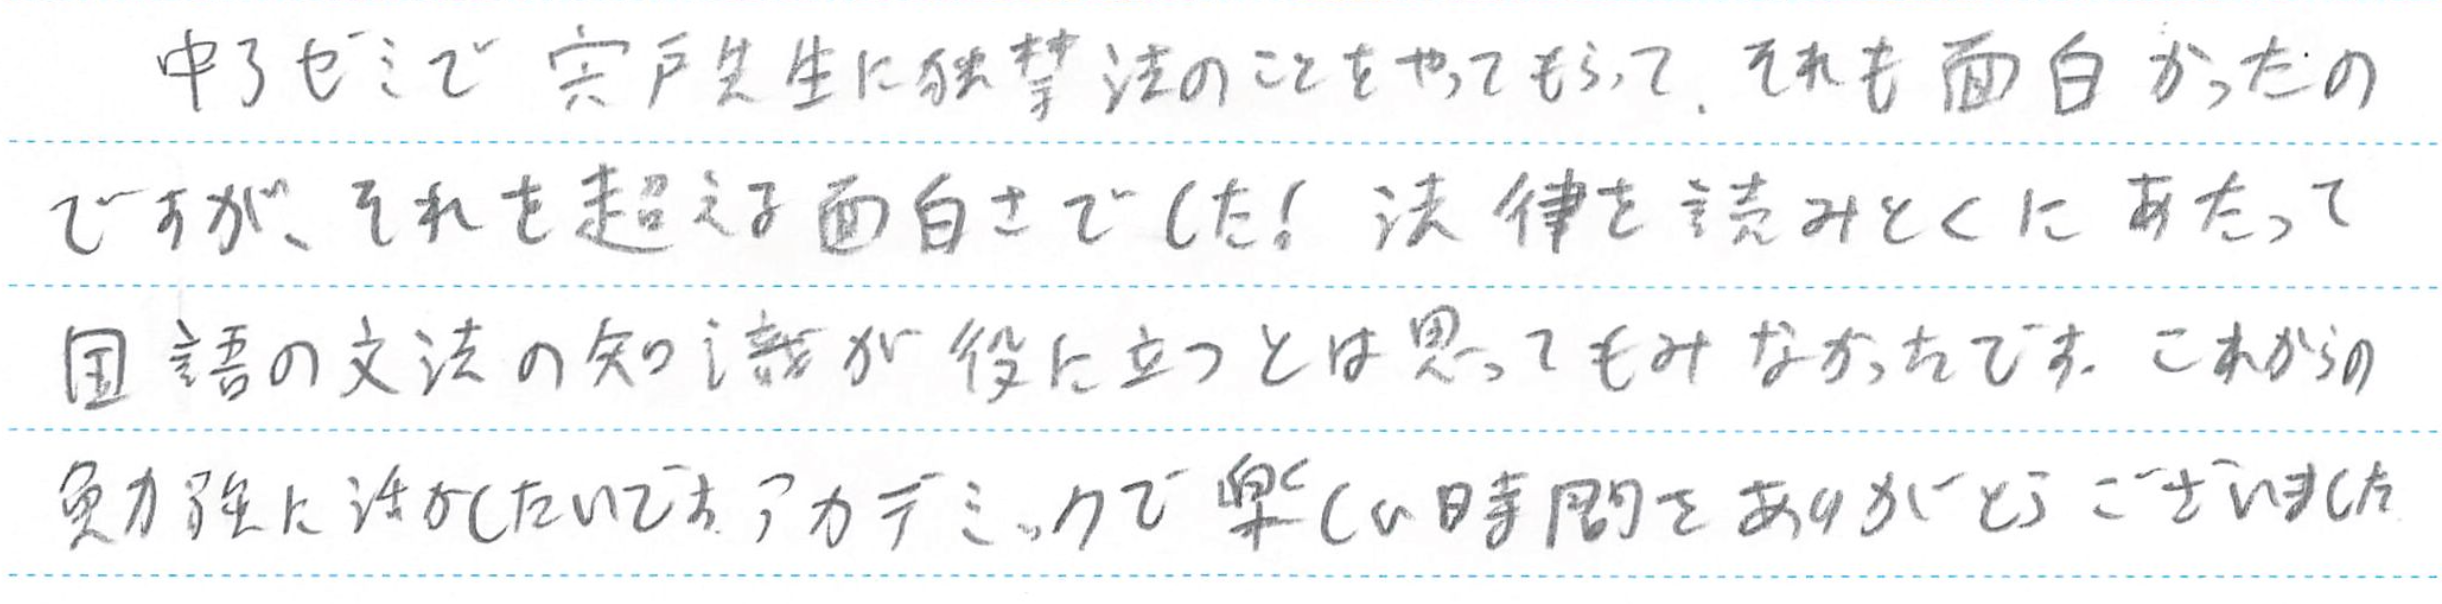 中3ゼミで宍戸先生に独禁法のことをやってもらって、それも面白かったの
ですが、それを超える面白さでした!法律を読みとくにあたって
国語の文法の知識が役に立つとは思ってもみなかったです。これからの
勉強に活かしたいです。アカデミックで楽しい時間をありがとうございました